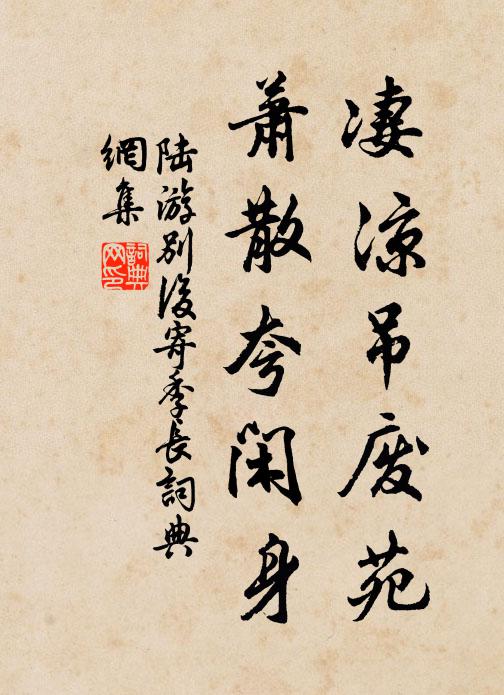 凄凉吊废苑
萧散夸闲身
陆游别后寄季长词典
网集
词典
网印